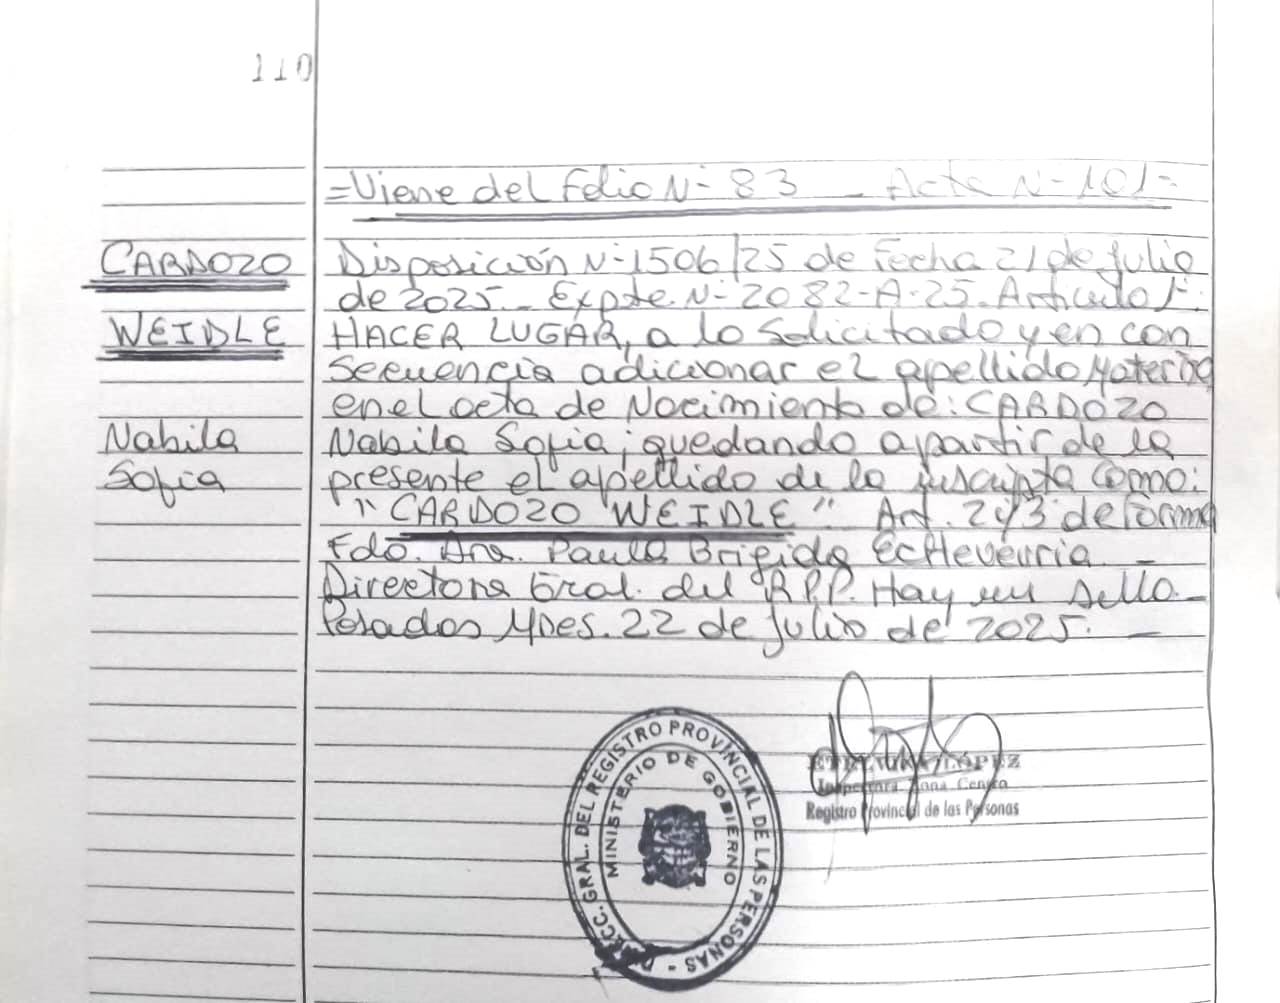 110
=Viene del Folio N- 83 _ Acta N-101=
CARDOZO
WEIDLE
Nabila
Sofia
Disposición N-1506/25 de Fecha 21 de Julio
de 2025._ Expte. N- 2082-A-25. Articulo 1-:
HACER LUGAR, a lo Solicitado y en con
Secuencia adicionar el apellido Materno
en el acta de Nacimiento de: CARDOZO
Nabila Sofia; quedando a partir de la
presente el apellido de la inscripta como:
"CARDOZO WEIDLE". Art. 2 y 3 de forma
Fdo. Dra. Paula Brigida Echeverria _
Directora Gral. del R.P.P. Hay un sello._
Posadas Mnes. 22 de Julio de 2025. _
DIRECC. GRAL. DEL REGISTRO PROVINCIAL DE LAS PERSONAS -
MINISTERIO DE GOBIERNO
LÓPEZ
Inspectora Zona Centro
Registro Provincial de las Personas